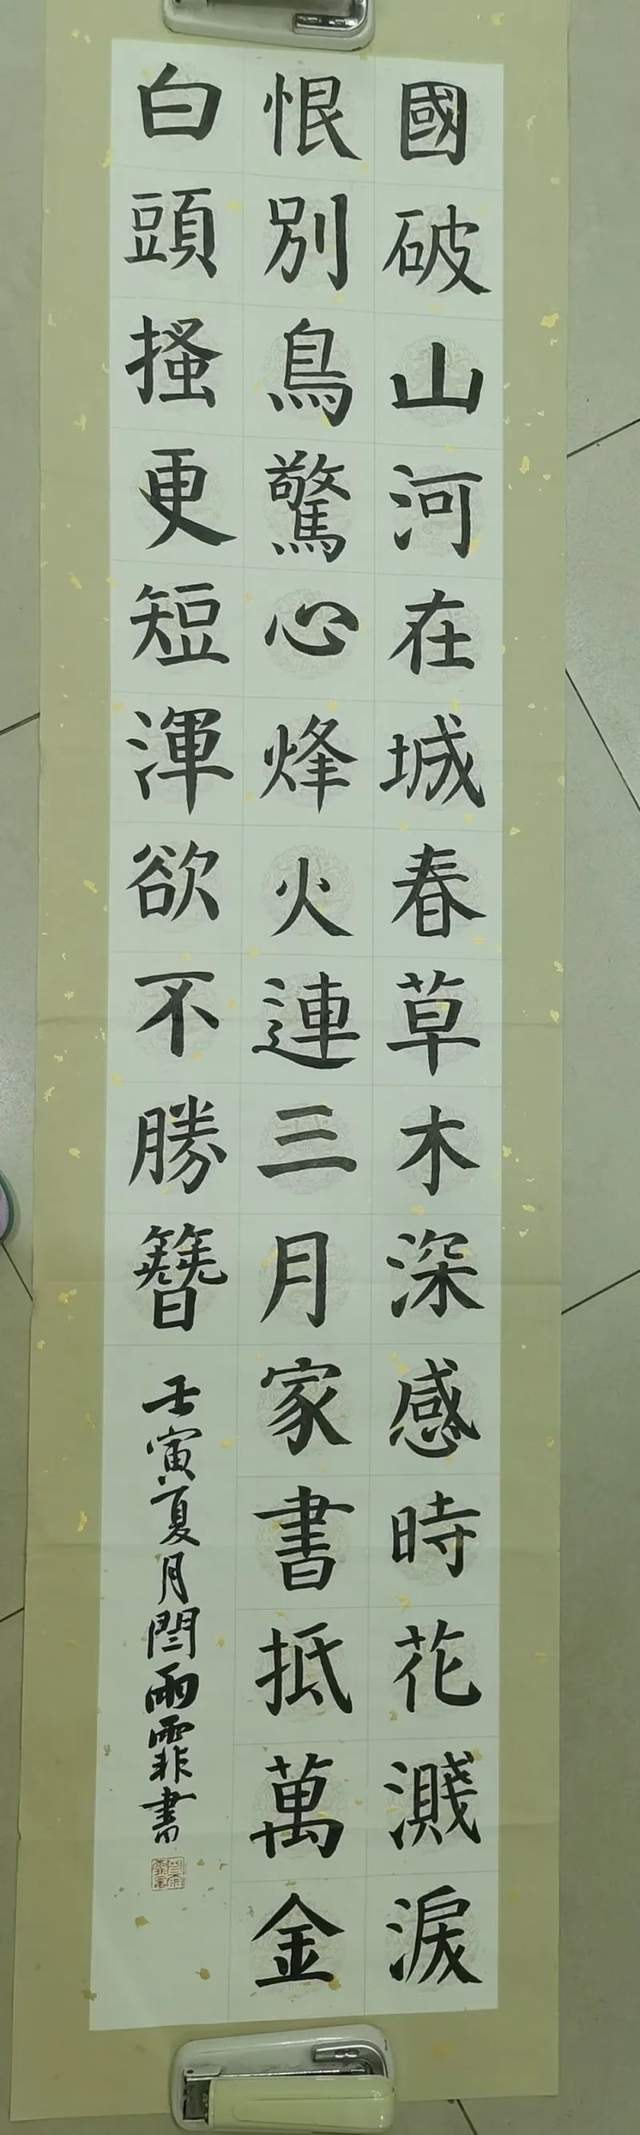 國破山河在城春草木深感時花濺淚
恨別鳥驚心烽火連三月家書抵萬金
白頭搔更短渾欲不勝簪
壬寅夏月閆雨霏書